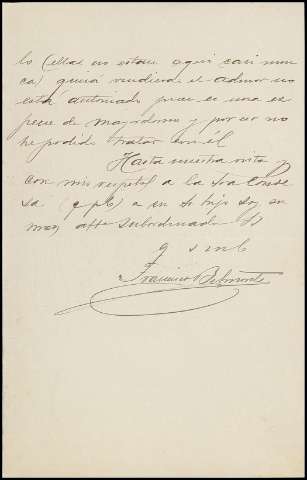 lo (ellas no estan aqui casi nun
ca) quizá vendiera el admor no
está autorizado pues es una es
pecie de mayordomo y por eso no
he podido tratar con él
Hasta nuestra vista y
con mis respetos a la Sra Conde
sa (q p b) a su hijo soy su
muy affo subordinado SS
q s m b
Francisco Belmonte